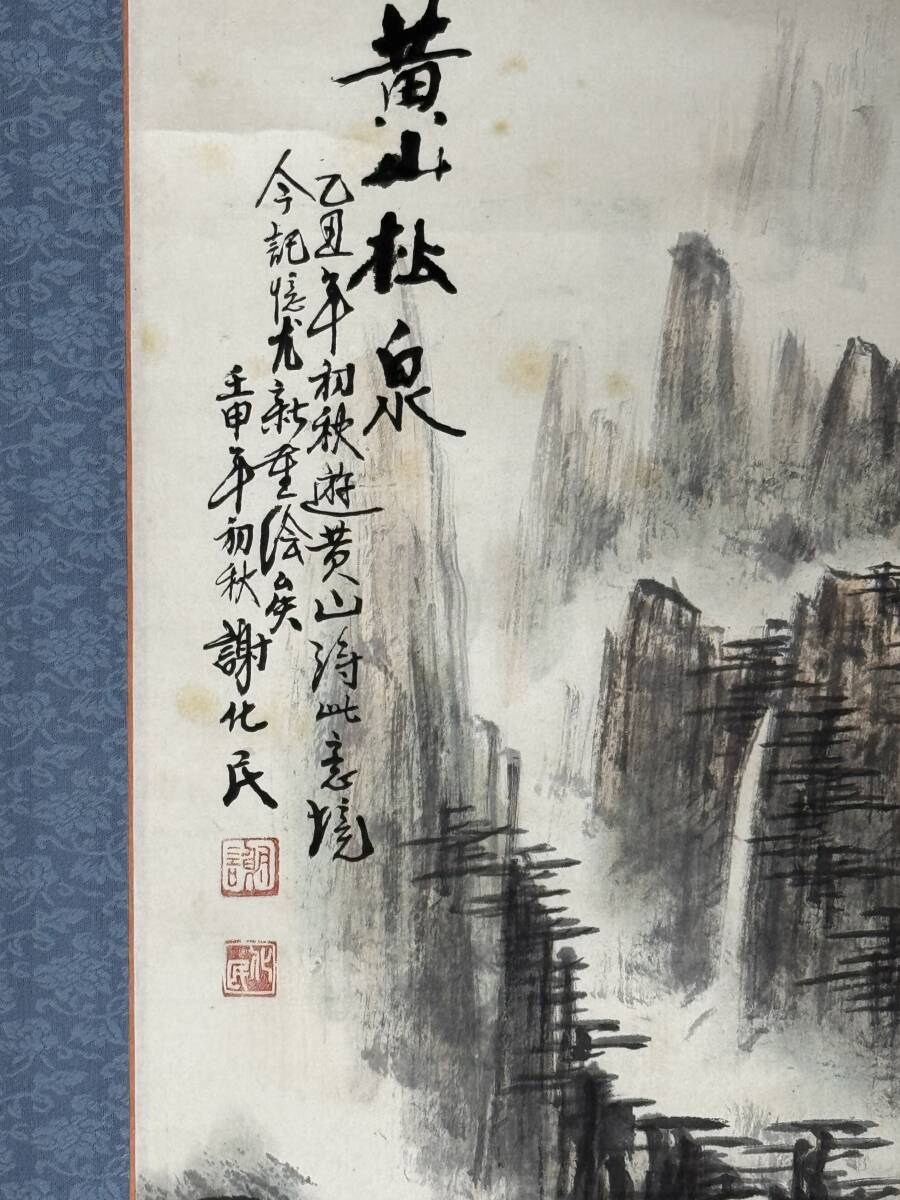 黄山松泉
乙丑年初秋遊黄山得此意境
今記憶尤新重绘矣
壬申年初秋謝化民
謝
化民